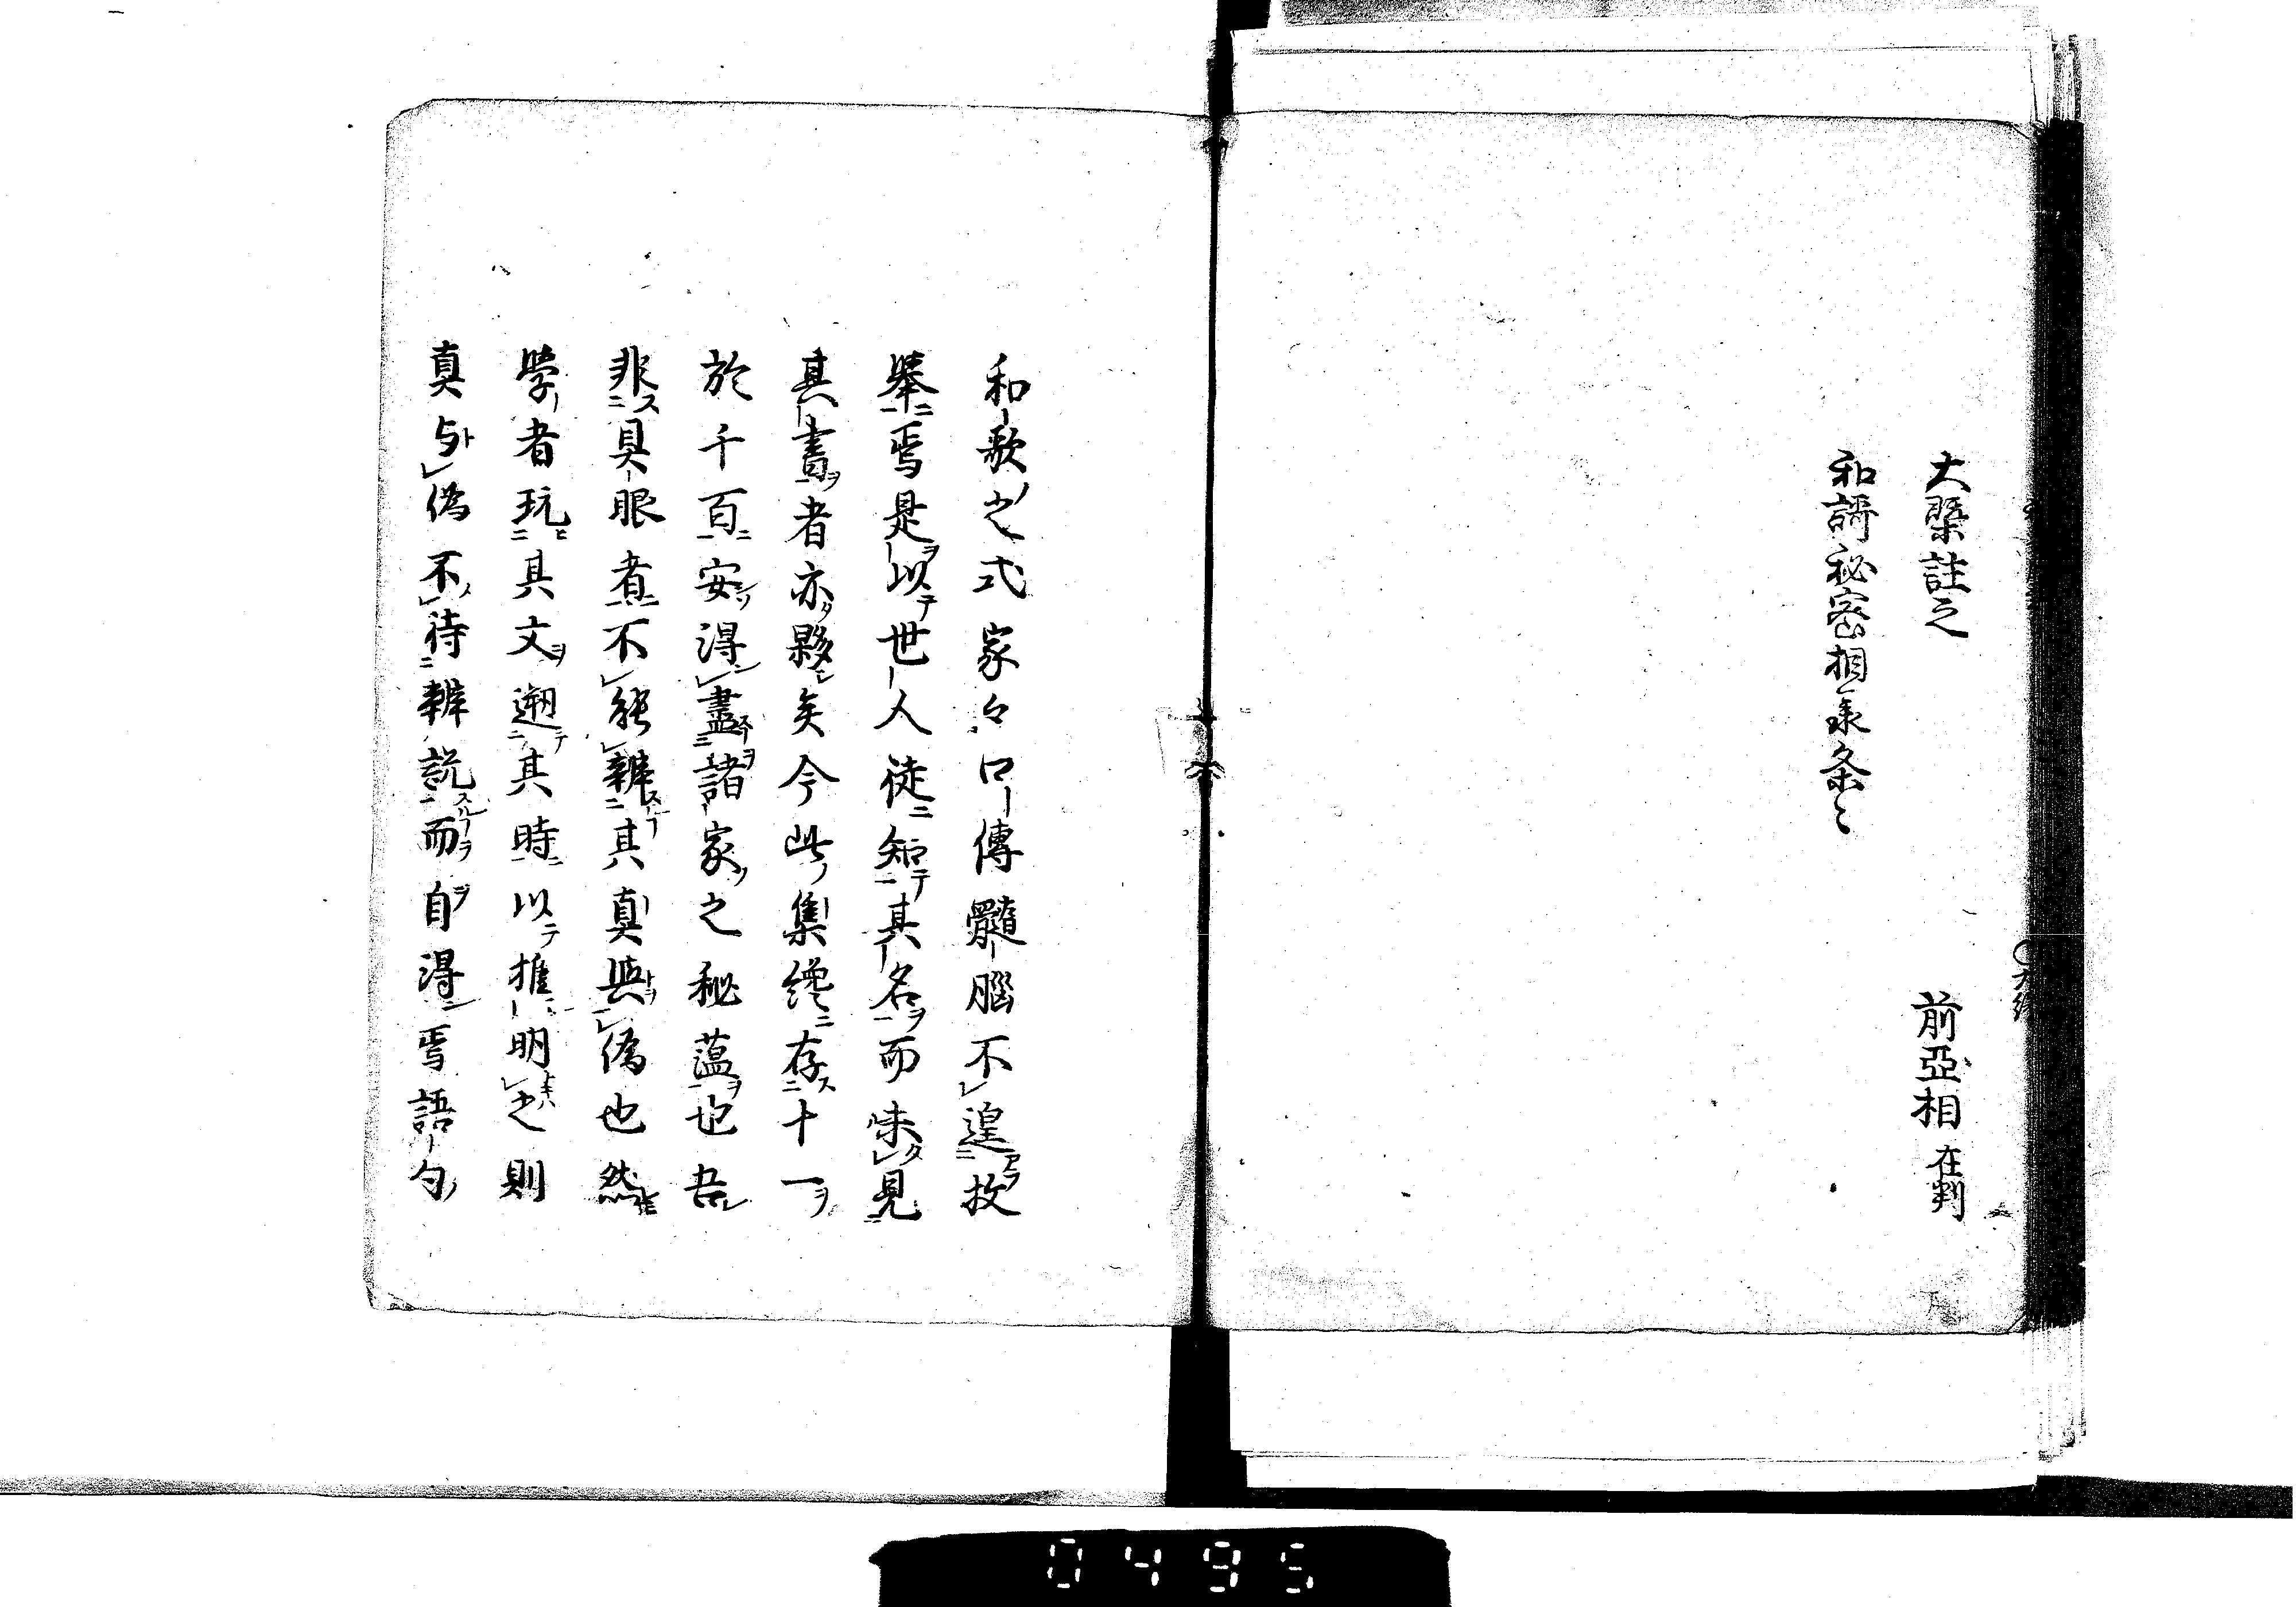 大槩註之　前亞相 在判
和謌秘密相承条〻
和歌之式家々口傳髓腦不遑枚
擧焉是以世人徒知其名而昧見
其書者亦夥矣今此集纔存十一
於千百安得盡諸家之秘蘊也吾
非具眼者不能辨其真與偽也然
學者玩其文遡其時以推明之則
真与偽不待辨説而自得焉語勺
0495